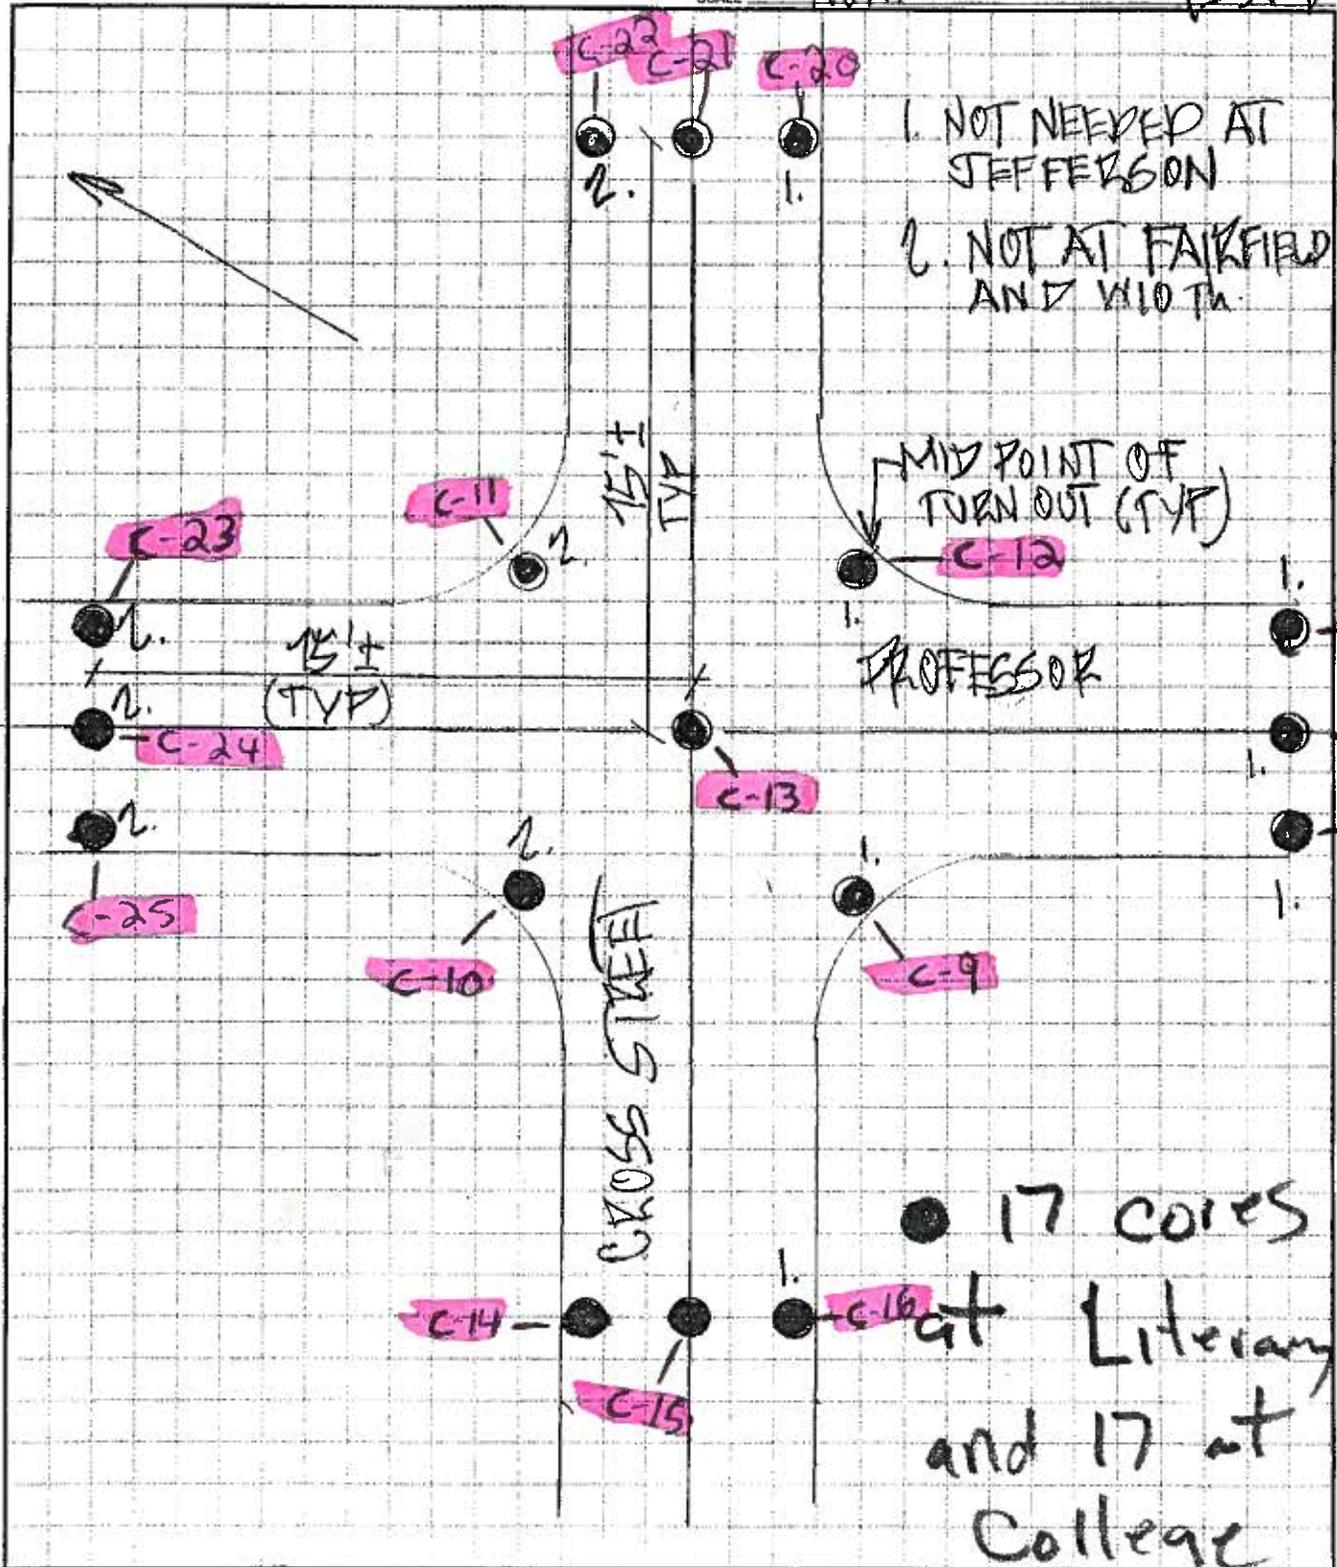 C-22 C-21 C-20
1. NOT NEEDED AT
JEFFERSON
2. NOT AT FAIRFIELD
AND
2.
1.
15'±
TYP
MID POINT OF
TURN OUT (TYP)
C-11
2.
C-12
1.
C-23
2.
1.
15'±
(TYP)
PROFESSOR
2.
C-24
1.
C-13
2.
C-25
2.
1.
1.
C-10
C-9
CROSS STREET
17 cores
1.
C-14
C-16
at Literary
C-15
and 17 at
College